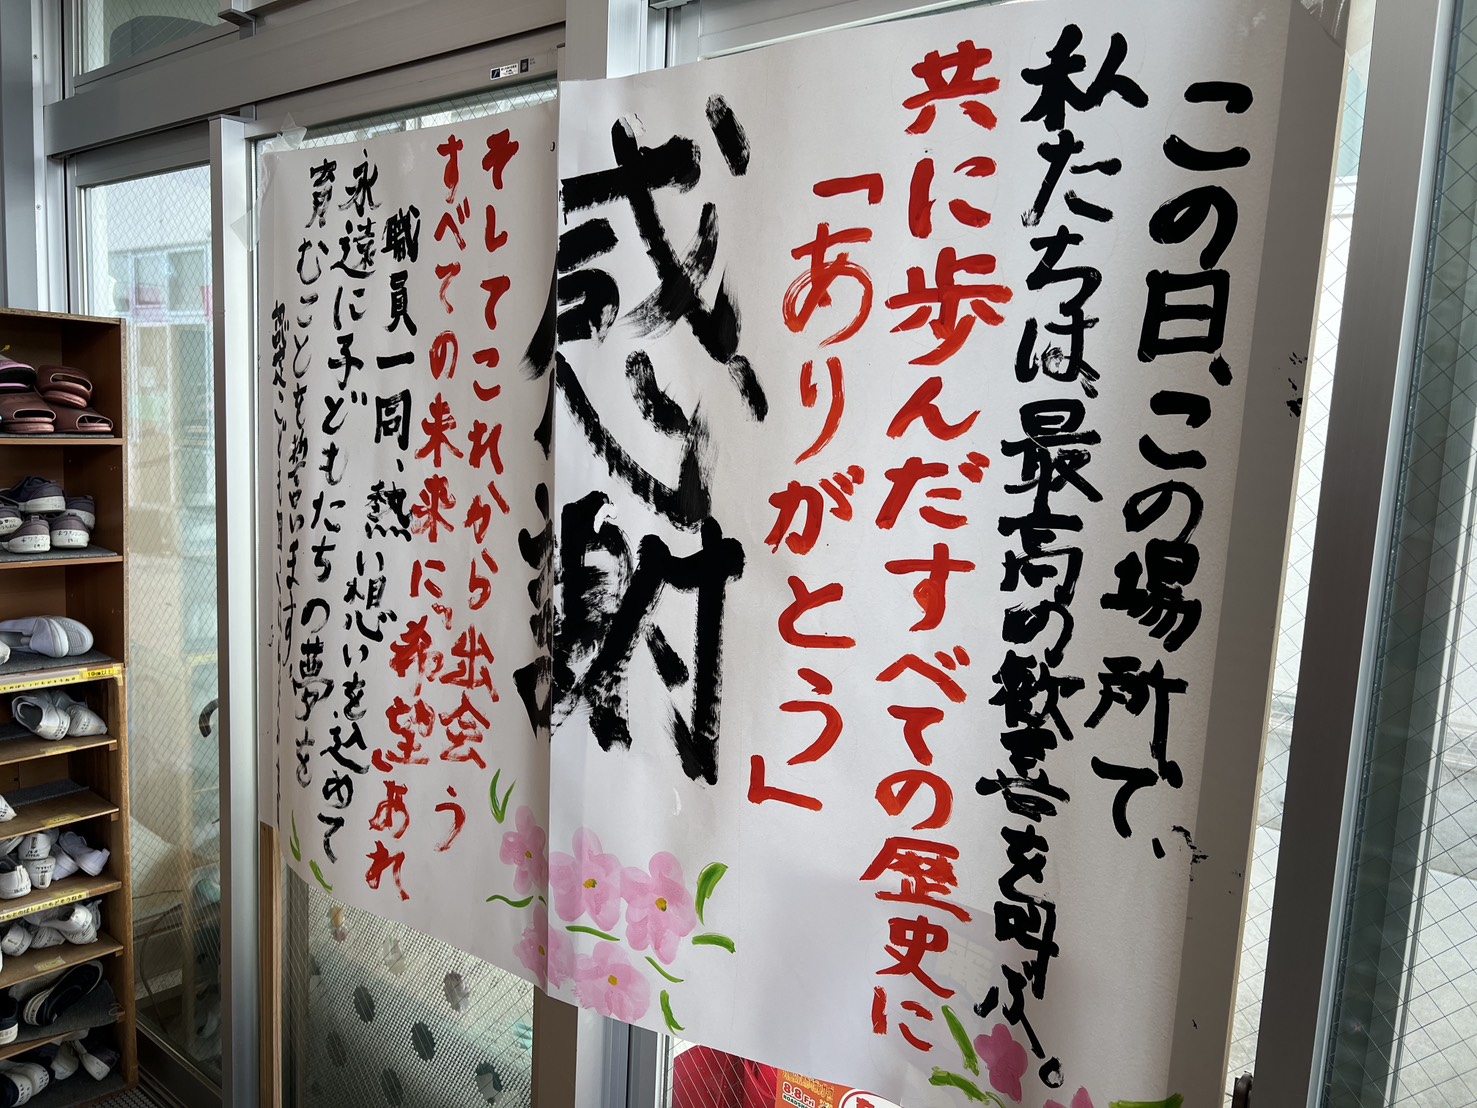 この日、この場所で、
私たちは最高の歓喜を叫ぶ。
共に歩んだすべての歴史に
「ありがとう」
感謝
そしてこれから出会う
すべての未来に"希望"あれ
職員一同、熱い想いを込めて
永遠に子どもたちの夢を
育むことを誓います。
8.8 Fri